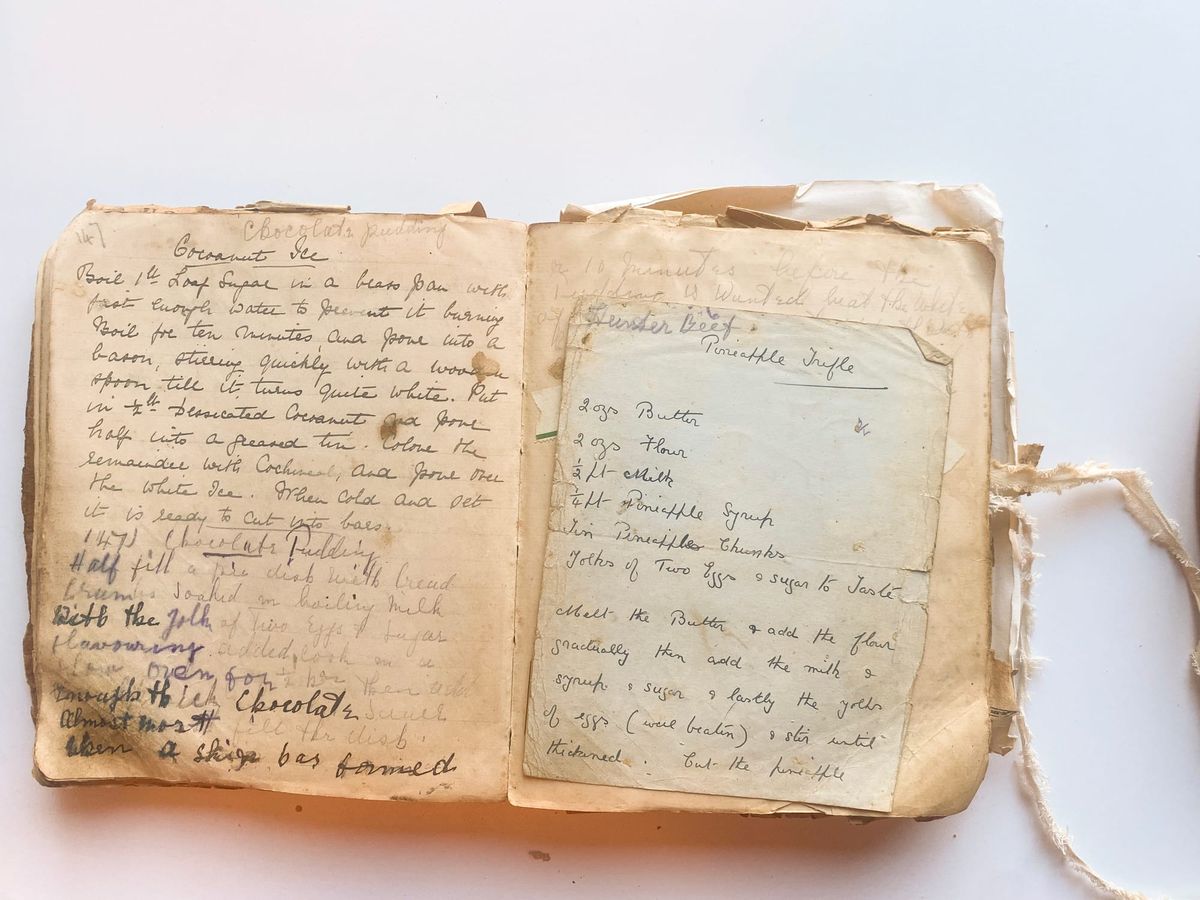 147
Chocolate pudding
Cocoanut Ice
Boil 1lb Loaf Sugar in a brass pan with
just enough Water to prevent it burning
Boil for ten minutes and pour into a
bason, stirring quickly with a wooden
spoon till it turns quite white. Put
in ½lb Dessicated Cocoanut and pour
half into a greased tin. Colour the
remainder with Cochineal, and pour over
the white Ice. When cold and set
it is ready to cut into bars.
147) Chocolate Pudding
Half fill a pie dish with bread
Crumbs soaked in boiling Milk
With the Yolk of two Eggs & Sugar
flavouring added, Cook in a
oven for then add
Enough thick Chocolate
Almost fill the dish.
When a skin has formed
or 10 minutes before the
pudding is Wanted beat the
Hunter Beef
Pineapple Trifle
2 ozs Butter
2 ozs Flour
½ pt Milk
¼ pt Pineapple Syrup
Tin Pineapple Chunks
Yolks of Two Eggs & sugar to Taste
Melt the Butter & add the flour
gradually then add the milk &
syrup & sugar & lastly the yolks
of eggs (well beaten) & stir until
thickened. Cut the pineapple